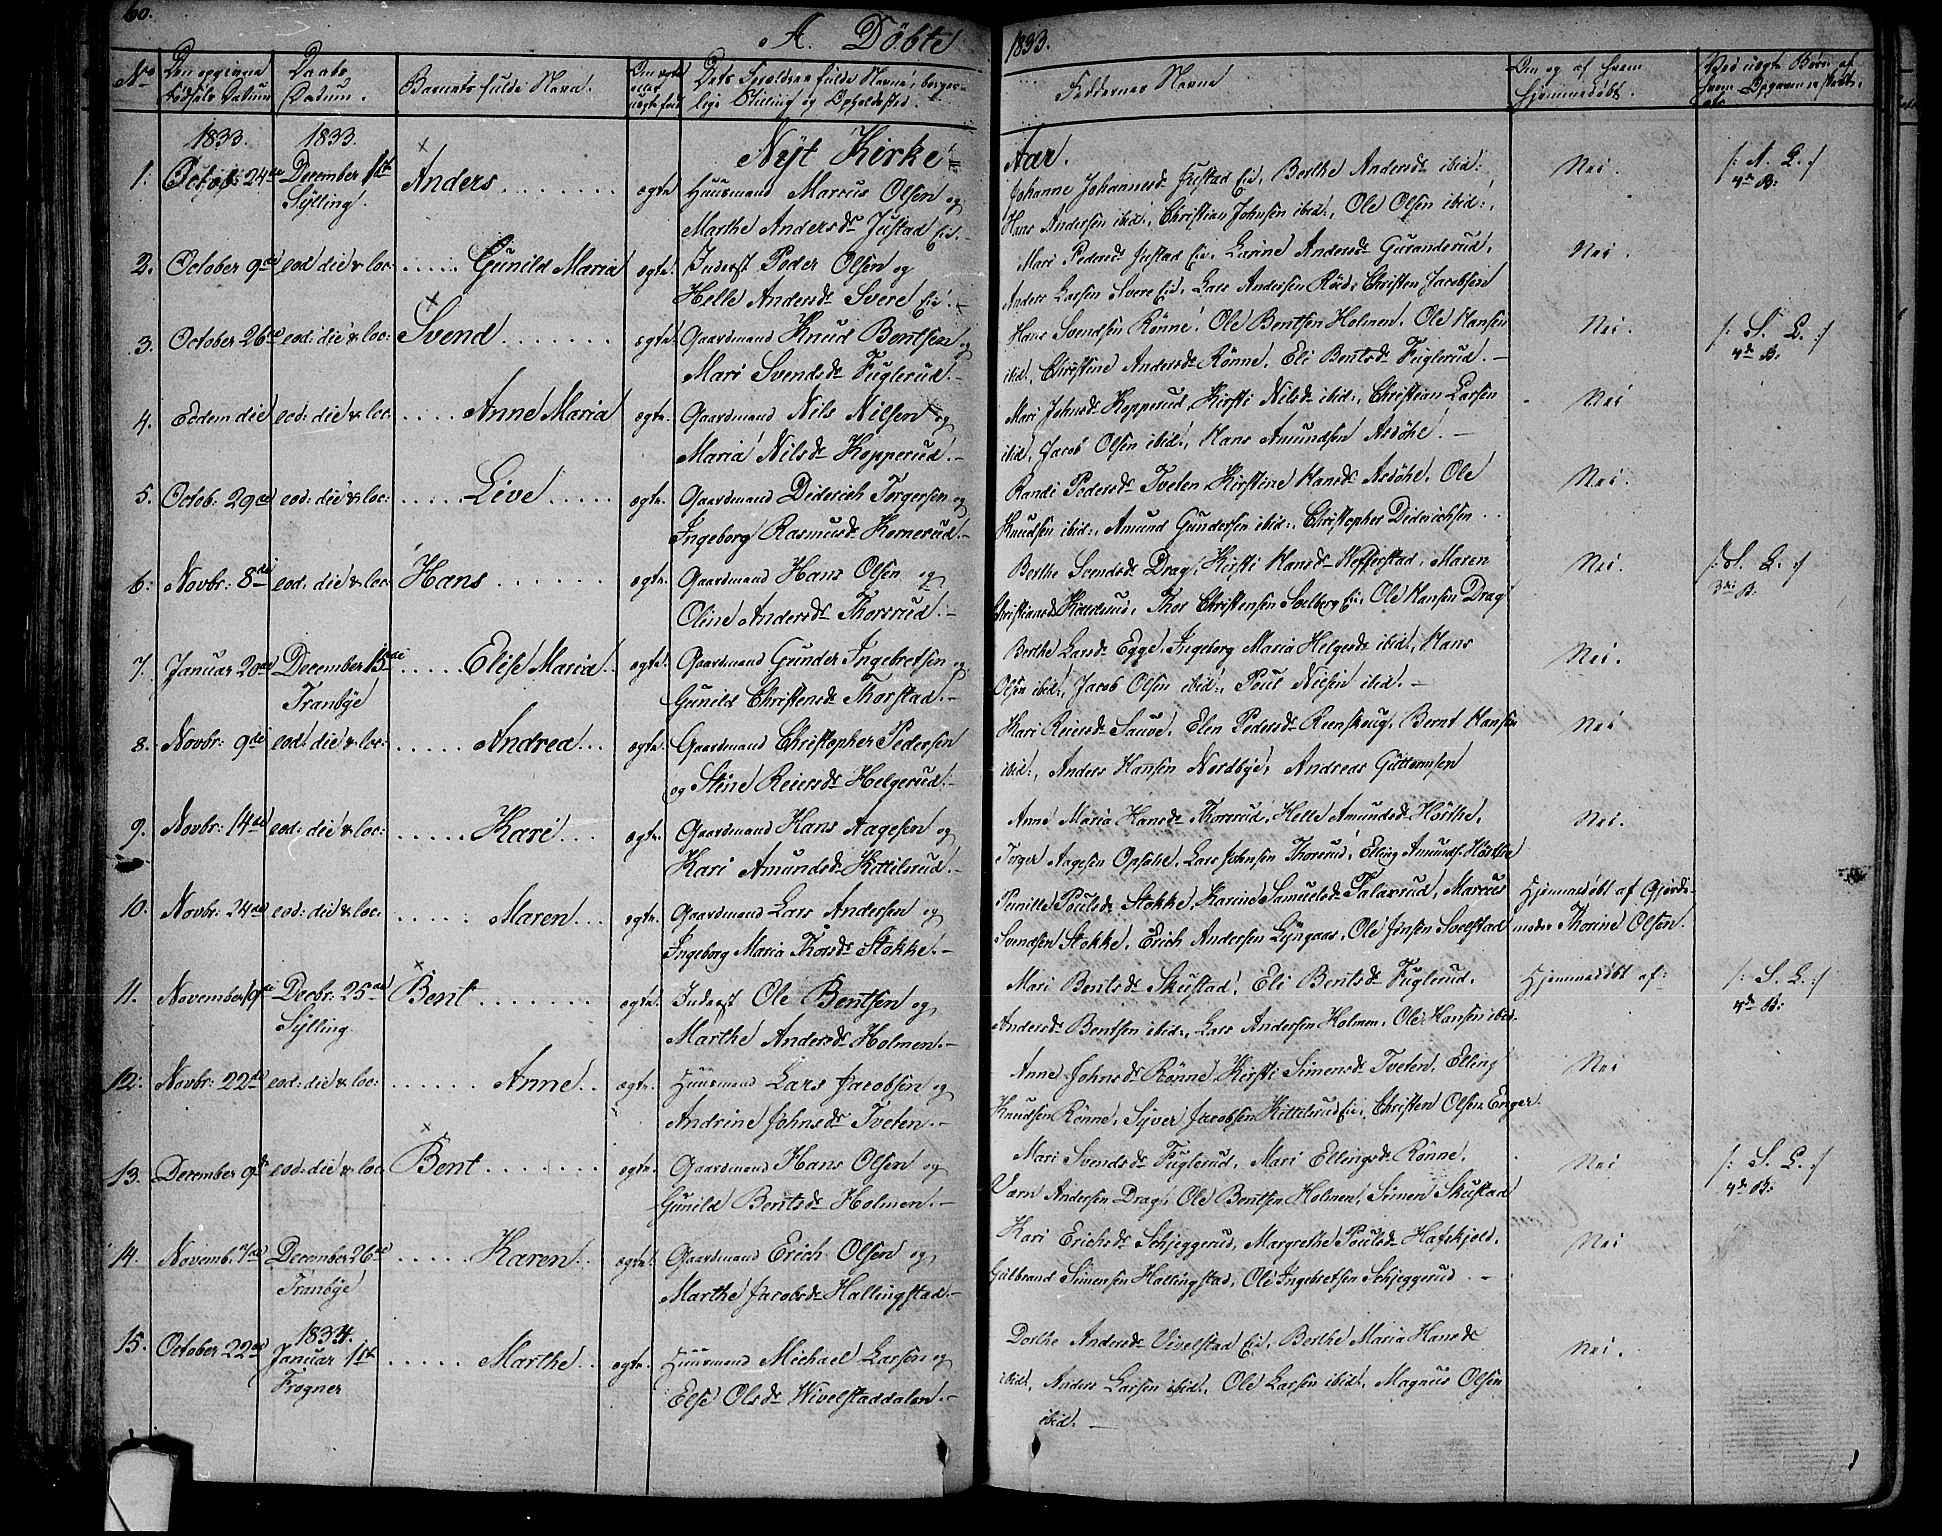 60.
A. Döbte 1833.
No Den opgivne Födsels Datum Daabs Datum. Barnets fulde Navn. Om ægte eller uægte født Dets Forældres fulde Navne, borgerlige Stilling og Opholdssted. Faddernes Navne Om og af hvem hjemmedöbt.
1833. 1833. Nyt Kirke= Aar.
1. Octob: 24de December 1ste Anders ægte Huusmand Marcus Olsen og Johanne Johannesd Justad Eie, Berthe Andersd ibid: Nei. /: A. L. :/
Sylling. Marthe Andersd Justad Eie.- Hans Andersen ibid:, Christian Johnsen ibid:, Ole Olsen ibid:, 4de B:
2. October 9de eod: die & loc: Gunild Maria ægte. Inderst Peder Olsen og Mari Pedersd Justad Eie, Larine Andersd Guranderud, Nei.
Helle Andersd Svere Eie.- Anders Larsen Svere Eie, Lars Andersen Röed, Christen Jacobsen
3. October 26de eod: die & loc: Svend ægte. Gaardmand Knud Bentsen og Hans Svendsen Rönne, Ole Bentsen Holmen, Ole Hansen Nei. /: S. L. :/
Mari Svendsd Fuglerud.- ibid:, Christine Andersd Rönne, Eli Bentsd Fuglerud.- 4de B:
4. Eodem die eod: die & loc: Anne Maria ægte. Gaardmand Nils Nilsen og Mari Johnsd Kopperud, Kirsti Nilsd ibid:, Christian Larsen Nei
Maria Nilsd Kopperud.- ibid:, Jacob Olsen ibid:, Hans Amundsen Asdöhl.-
5. Octob: 29de eod: die & loc: Live ægte. Gaardmand Diderich Torgersen og Randi Pedersd Tveten, Kirstine Hansd Asdöhl, Ole Nei.
Ingeborg Rasmusd Kornerud.- Knudsen ibid:, Amund Gundersen ibid:, Christopher Diderichsen
6. Novbr: 8de eod: die & loc: Hans ægte. Gaardmand Hans Olsen og Berthe Svendsd Drag, Kirsti Hansd Hefferstad, Maren Nei. /: S. L. :/
Oline Andersd Thorsrud.- Christiansd Kittilsrud, Thor Christensen Solberg Eie, Ole Hansen Drag 3die B.
7. Januar 20de December 15de Elise Maria ægte. Gaardmand Gunder Ingebretsen og Berthe Larsd Egge, Ingeborg Maria Helgesd ibid:, Hans Nei.
Tranbye Gunild Christensd Thorstad.- Olsen ibid:, Jacob Olsen ibid:, Poul Nielsen ibid.-
8. Novbr: 9de eod: die & loc: Andrea ægte. Gaardmand Christopher Pedersen Kari Reiersd Sauve, Elen Pedersd Reenskoug, Bernt Hansen Nei
og Stine Reiersd Helgerud.- ibid:, Anders Hansen Nordbye, Andreas Guttormsen
9. Novbr: 14de eod: die & loc: Kari ægte. Gaardmand Hans Aagesen og Anne Maria Hansd Thorsrud, Helle Amundsd Hörthe, Nei.
Kari Amundsd Kittilsrud.- Torger Aagesen Opsahl, Lars Johnsen Thorsrud, Elling Amunds. Hörthe
10. Novbr: 24de eod: die & loc: Maren ægte. Gaardmand Lars Andersen og Pernille Poulsd Stokke, Karine Samuelsd Talaxrud, Marcus Hjemmedöbt af Gjorde-
Ingeborg Maria Thorsd Stokke.- Svendsen Stokke, Erich Andersen Lyngaas, Ole Jensen Solstad moder Thorine Olsen.
11. November 19de Decbr: 25de Bent ægte. Inderst Ole Bentsen og Mari Bentsd Skustad, Eli Bentsd Fuglerud, Hjemmedöbt af: /: S. L. :/
Sylling Marthe Andersd Holmen.- Andersd Bentsen ibid:, Lars Andersen Holmen, Ole Hansen ibid. 4de B:
12. Novbr: 22de eod: die & loc: Anne ægte. Huusmand Lars Jacobsen og Anne Johnsd Rönne, Kirsti Simensd Tveten, Elling Nei
Andrine Johnsd Tveten.- Knudsen Rönne, Syver Jacobsen Kittilsrud Eie, Christen Olsen Enger
13. December 9de eod: die & loc: Bent ægte. Gaardmand Hans Olsen og Mari Svendsd Fuglerud, Mari Ellingsd Rönne, Nei /: S. L. :/
Gunild Bentsd Holmen.- Vorn Andersen Drag, Ole Bentsen Holmen, Simen Skustad 4de B:
14. Novemb. 7de December 26de Karen ægte. Gaardmand Erich Olsen og Kari Erichsd Schjeggerud, Margrethe Poulsd Hafskjold, Nei
Tranbye Marthe Jacobsd Hallingstad.- Gulbrand Simensen Hallingstad, Ole Ingebretsen Schjeggerud.-
15. October 22de 1834. Januar 1ste Marthe ægte. Huusmand Michael Larsen og Dorthe Andersd Vivelstad Eie, Berthe Maria Hansd Nei.
Frogner Else Olsd Wivelstaddalen.- ibid:, Anders Larsen ibid:, Ole Larsen ibid:, Magnus Olsen
ibid: -